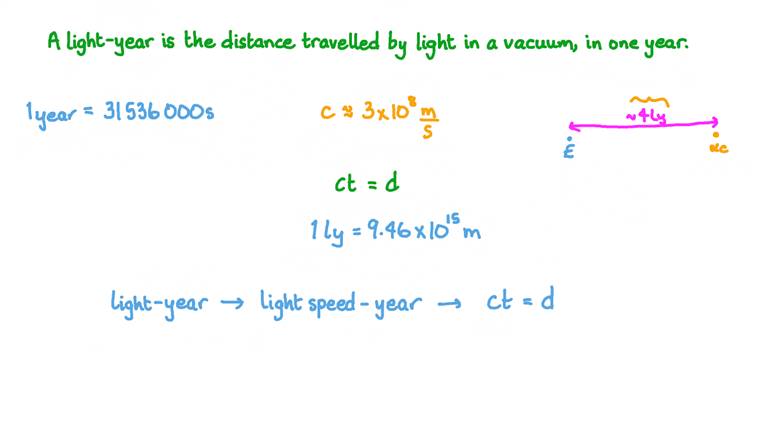 A light-year is the distance travelled by light in a vacuum, in one year.
1 year = 31536000s
c ≈ 3×10⁸ m/s
≈4ly
E
αc
ct = d
1 ly = 9.46×10¹⁵ m
light-year → light speed-year → ct = d